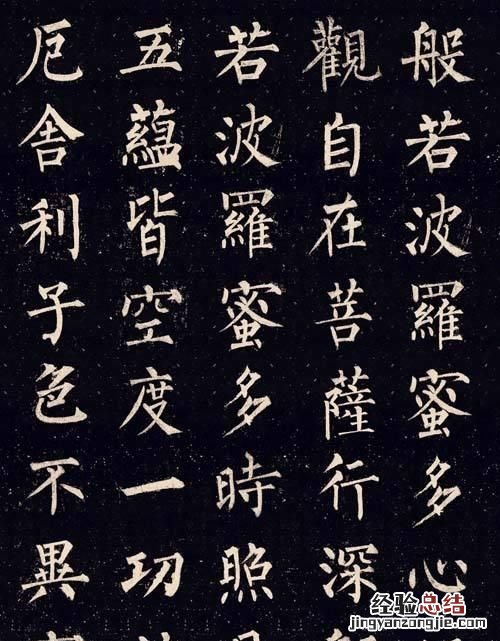 般若波羅蜜多心
觀自在菩薩行深
若波羅蜜多時照
五蘊皆空度一切
厄舍利子色不異
经验总结
jingyanzongjie.com